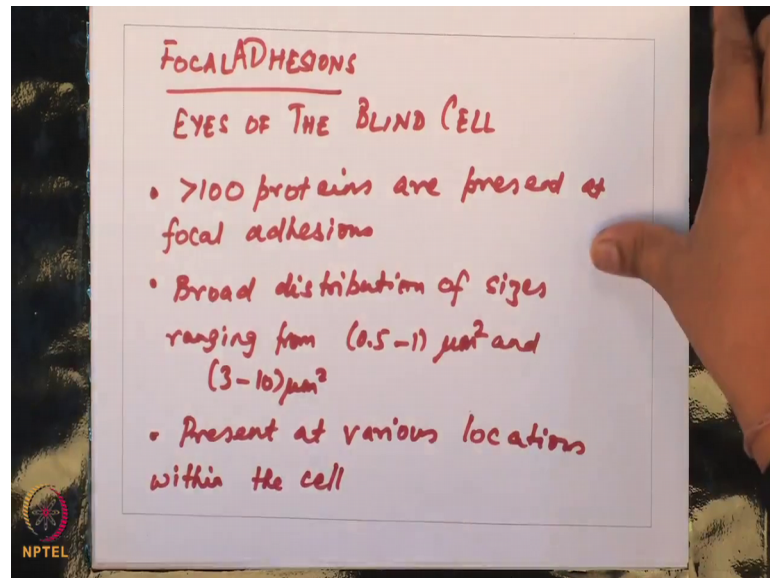 FOCAL ADHESIONS
EYES OF THE BLIND CELL
• >100 proteins are present at
focal adhesions
• Broad distribution of sizes
ranging from (0.5-1) μm² and
(3-10) μm²
• Present at various locations
within the cell
NPTEL